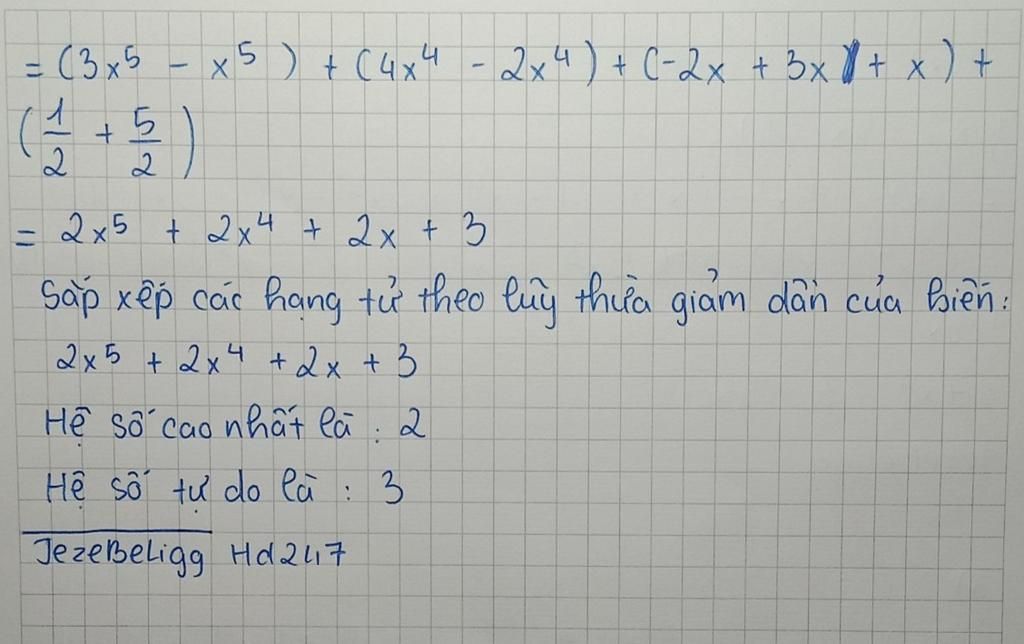 = (3x⁵ - x⁵) + (4x⁴ - 2x⁴) + (-2x + 3x + x) +
(1/2 + 5/2)
= 2x⁵ + 2x⁴ + 2x + 3
Sắp xếp các hạng tử theo lũy thừa giảm dần của biến:
2x⁵ + 2x⁴ + 2x + 3
Hệ số cao nhất là : 2
Hệ số tự do là : 3
JezeBeLigg Hd247